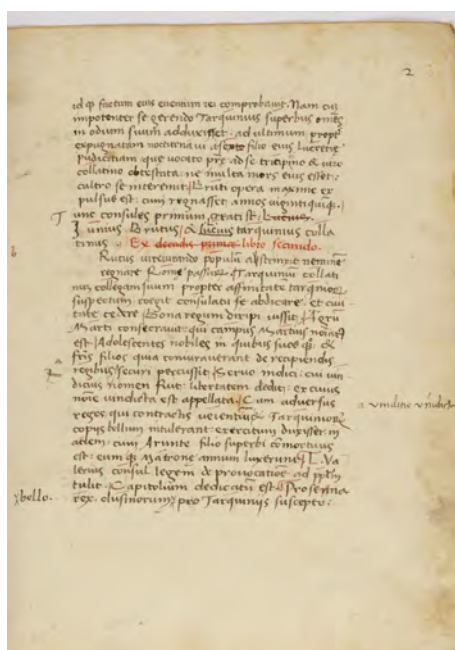 2
id q̄ factum eius eventum rei comprobavit. Nam cum
impotenter se gerendo Tarquinius superbus omēs
in odium suum adduxisset: ad ultimum propt̄
expugnatam nocturna vi a sexto filio eius Lucretie
pudicitiam que vocato pr̄e ad se tricipino & viro
collatino obtestata: ne inulta mors eius esset:
cultro se interemit: Bruti opera maxime ex
pulsus est: cum regnasset annos vigintiquīq.
Tunc consules primum creati st̄: Lucius
Iunius Brutus / & Lucius tarquinius colla
tinus Ex decadis prime libro secundo.
Rutus iureiurando populū abstrinxit neminē
regnare Rome passurū Tarquinium collati
num collegam suum propter affinitatē tarquiniorū
suspectum coegit consulatu se abdicare: et civi
tate cedere Bona regum diripi iussit: Agrū
Marti consecravit: qui campus Martius noiatꝰ
est Adolescentes nobiles in quibus suos q̄: &
fr̄is filios quia coniuraverant de recipiendis
regibus securi percussit Servo indici: cui vin
dicius nomen fuit: libertatem dedit: ex cuius
noīe vindicta est appellata Cum adversus
reges: qui contractis veientiū & Tarquiniorū
copijs bellum intulerant: exercitum duxisset in
aciem: cum Arunte filio superbi cōmortuus
est: eum q̄ Matrone annum luxerunt L. Va
lerius consul legem de provocatione ad pp̄lm
tulit Capitolium dedicatū est Prosenna
rex clusinorum pro Tarquinijs suscepto:
bello.